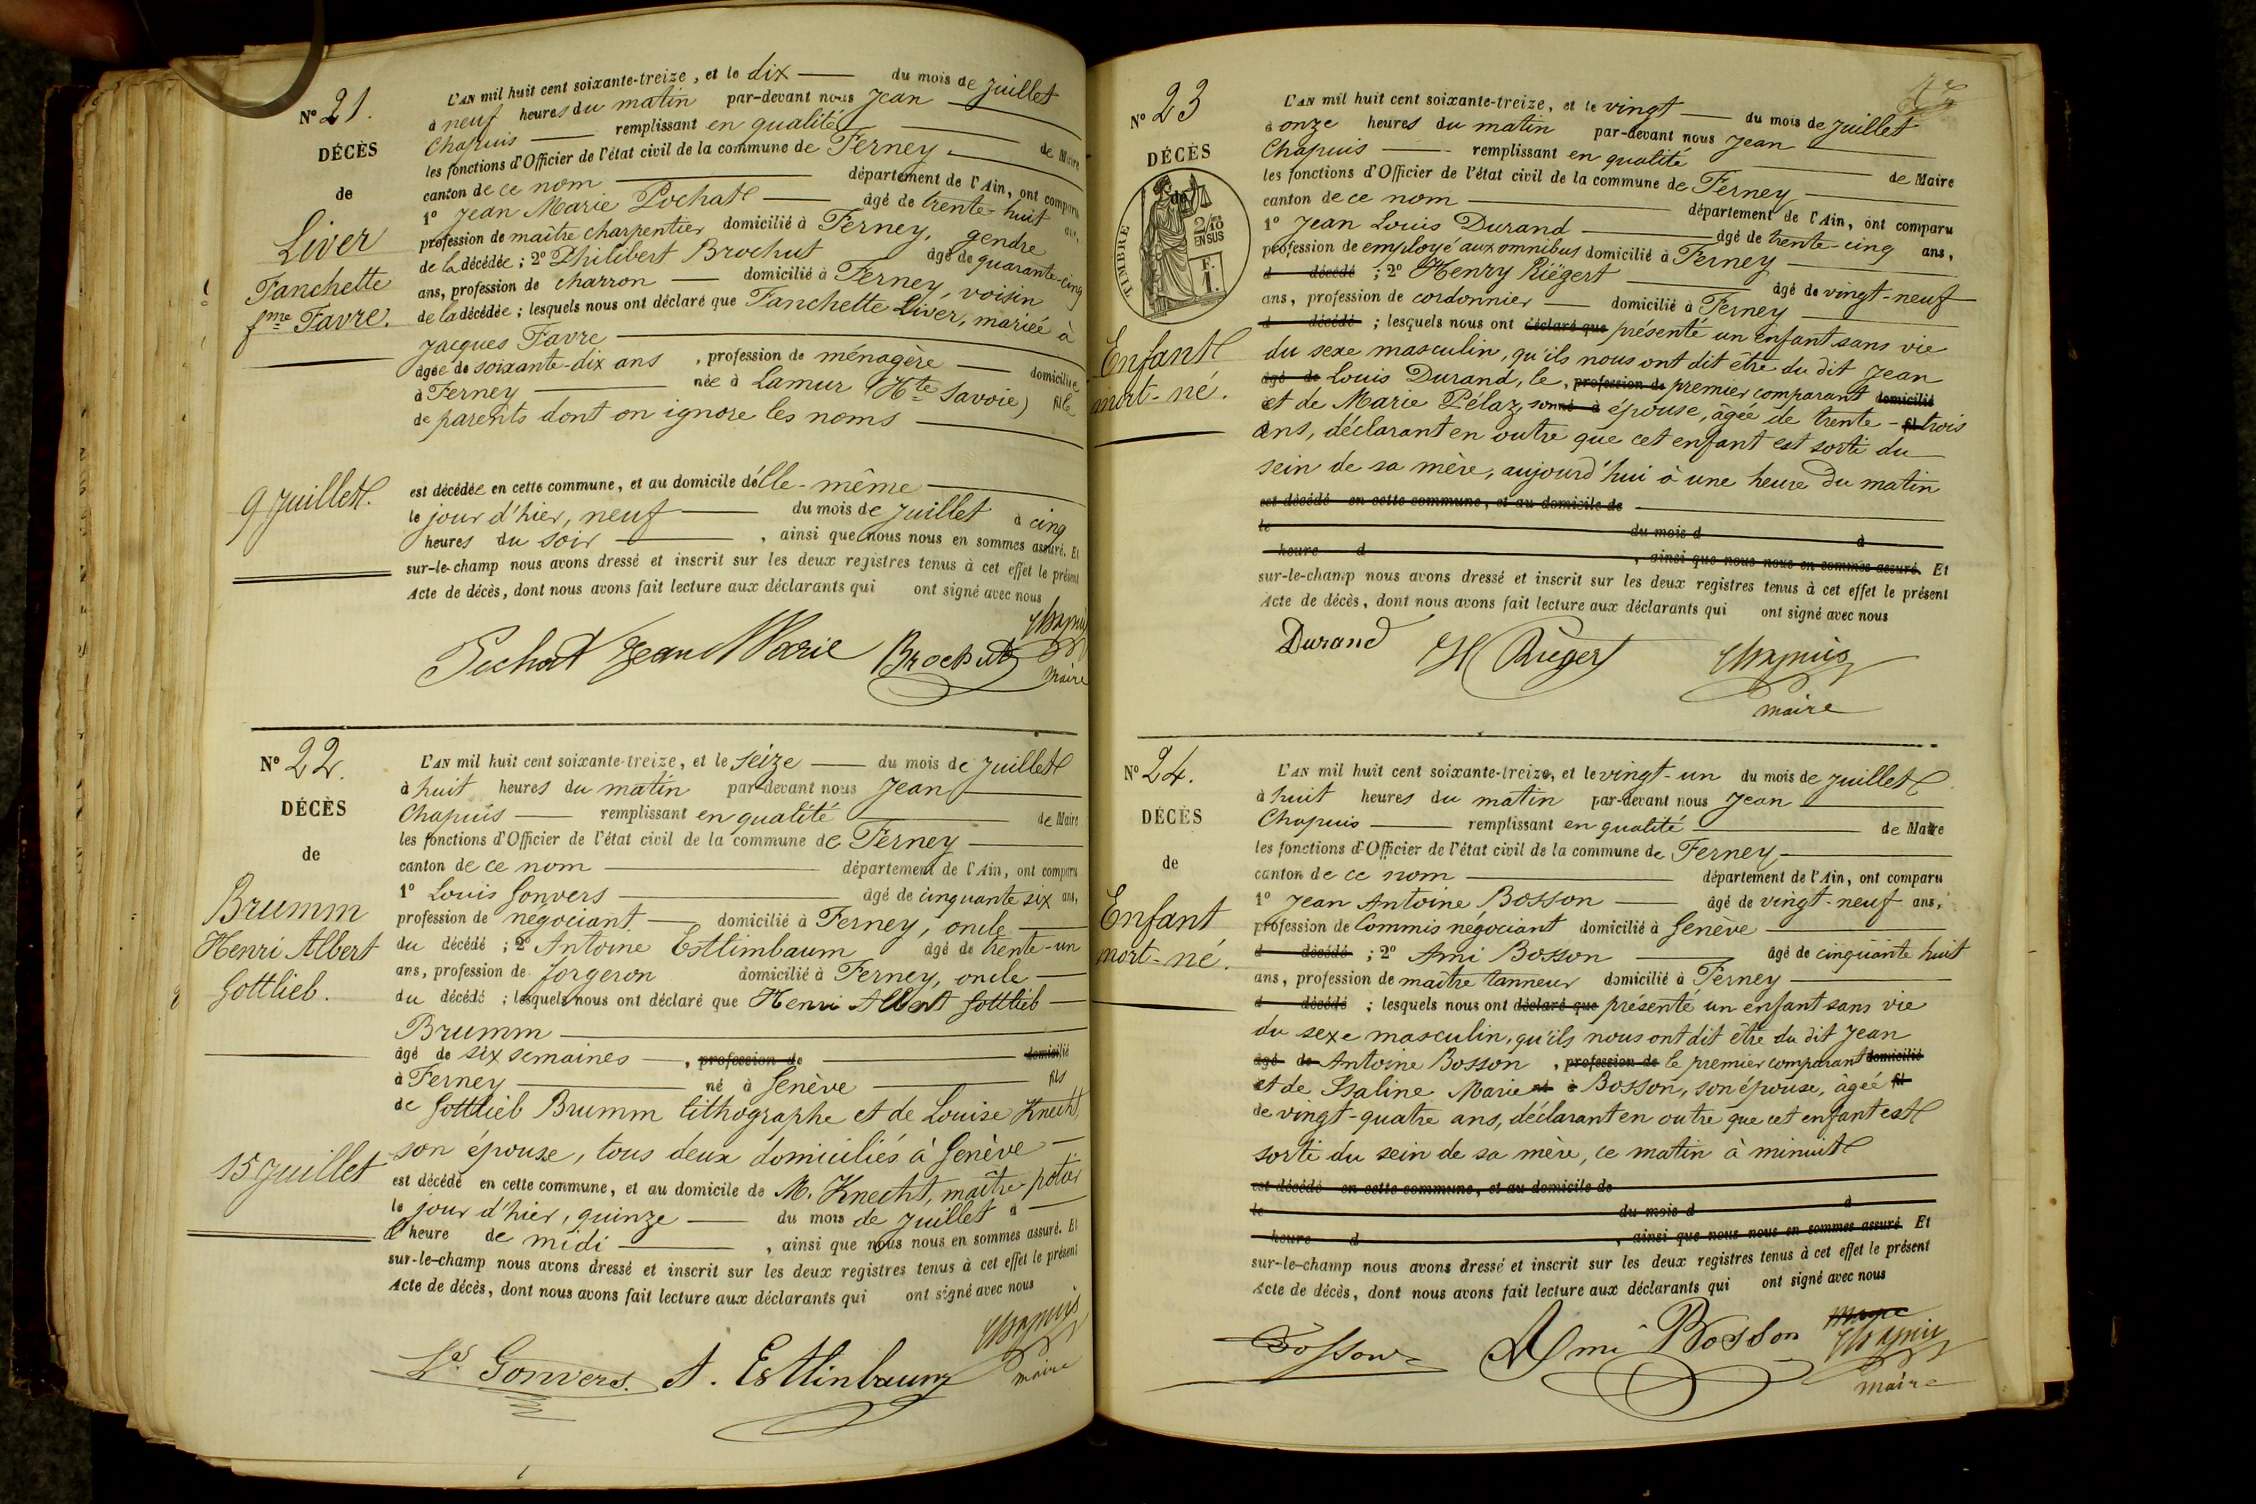 Nº 21.
DÉCÈS
de
Liver
Fanchette
fme Favre.
9 Juillet.
L'AN mil huit cent soixante-treize, et le dix du mois de Juillet
à neuf heures du matin par-devant nous Jean
Chapuis remplissant en qualité de Maire
les fonctions d'Officier de l'état civil de la commune de Ferney
canton de ce nom département de l'Ain, ont comparu
1º Jean Marie Pochat âgé de trente-huit ans,
profession de maître charpentier domicilié à Ferney, gendre
de la décédée ; 2º Philibert Brochut âgé de quarante-cinq
ans, profession de charron domicilié à Ferney, voisin
de la décédée ; lesquels nous ont déclaré que Fanchette Liver, mariée à
Jacques Favre
âgée de soixante-dix ans, profession de ménagère domiciliée
à Ferney née à Lamur (Hte Savoie) fille
de parents dont on ignore les noms
est décédée en cette commune, et au domicile d'elle-même
le jour d'hier, neuf du mois de Juillet à cinq
heures du soir, ainsi que nous nous en sommes assuré. Et
sur-le-champ nous avons dressé et inscrit sur les deux registres tenus à cet effet le présent
Acte de décès, dont nous avons fait lecture aux déclarants qui ont signé avec nous
Pochat Jean Marie Brochut Chapuis
maire
Nº 22.
DÉCÈS
de
Brumm
Henri Albert
Gottlieb.
15 Juillet
L'AN mil huit cent soixante-treize, et le seize du mois de Juillet
à huit heures du matin par-devant nous Jean
Chapuis remplissant en qualité de Maire
les fonctions d'Officier de l'état civil de la commune de Ferney
canton de ce nom département de l'Ain, ont comparu
1º Louis Gonvers âgé de cinquante six ans,
profession de négociant domicilié à Ferney, oncle
du décédé ; 2º Antoine Esttimbaum âgé de trente-un
ans, profession de forgeron domicilié à Ferney, oncle
du décédé ; lesquels nous ont déclaré que Henri Albert Gottlieb
Brumm
âgé de six semaines, profession de domicilié
à Ferney né à Genève fils
de Gottlieb Brumm lithographe et de Louise Knecht,
son épouse, tous deux domiciliés à Genève
est décédé en cette commune, et au domicile de M. Knecht, maître potier
le jour d'hier, quinze du mois de Juillet à
l'heure de midi, ainsi que nous nous en sommes assuré. Et
sur-le-champ nous avons dressé et inscrit sur les deux registres tenus à cet effet le présent
Acte de décès, dont nous avons fait lecture aux déclarants qui ont signé avec nous
Ls Gonvers. A. Esttinbaum Chapuis
maire
Nº 23
DÉCÈS
de
TIMBRE
2/10
EN SUS
F.
1.
Enfant
mort-né.
L'AN mil huit cent soixante-treize, et le vingt du mois de Juillet
à onze heures du matin par-devant nous Jean
Chapuis remplissant en qualité de Maire
les fonctions d'Officier de l'état civil de la commune de Ferney
canton de ce nom département de l'Ain, ont comparu
1º Jean Louis Durand âgé de trente-cinq ans,
profession de employé aux omnibus domicilié à Ferney
d décédé ; 2º Henry Riëgert âgé de vingt-neuf
ans, profession de cordonnier domicilié à Ferney
d décédé ; lesquels nous ont déclaré que présenté un enfant sans vie
du sexe masculin, qu'ils nous ont dit être du dit Jean
âgé de Louis Durand, le, profession de premier comparant domicilié
et de Marie Pélaz, son né à épouse, âgée de trente-fil trois
ans, déclarant en outre que cet enfant est sorti du
sein de sa mère, aujourd'hui à une heure du matin
est décédé en cette commune, et au domicile de
le du mois d à
heure d, ainsi que nous nous en sommes assuré. Et
sur-le-champ nous avons dressé et inscrit sur les deux registres tenus à cet effet le présent
Acte de décès, dont nous avons fait lecture aux déclarants qui ont signé avec nous
Durand H Riegert Chapuis
maire
Nº 24.
DÉCÈS
de
Enfant
mort-né.
L'AN mil huit cent soixante-treize, et le vingt-un du mois de Juillet
à huit heures du matin par-devant nous Jean
Chapuis remplissant en qualité de Maire
les fonctions d'Officier de l'état civil de la commune de Ferney
canton de ce nom département de l'Ain, ont comparu
1º Jean Antoine Bosson âgé de vingt-neuf ans,
profession de Commis négociant domicilié à Genève
d décédé ; 2º Ami Bosson âgé de cinquante huit
ans, profession de maître tanneur domicilié à Ferney
d décédé ; lesquels nous ont déclaré que présenté un enfant sans vie
du sexe masculin, qu'ils nous ont dit être du dit Jean
âgé de Antoine Bosson, profession de le premier comparant domicilié
et de Isaline Marie né à Bosson, son épouse, âgée fil
de vingt-quatre ans, déclarant en outre que cet enfant est
sorti du sein de sa mère, ce matin à minuit
est décédé en cette commune, et au domicile de
le du mois d à
heure d, ainsi que nous nous en sommes assuré. Et
sur-le-champ nous avons dressé et inscrit sur les deux registres tenus à cet effet le présent
Acte de décès, dont nous avons fait lecture aux déclarants qui ont signé avec nous
Bosson Ami Bosson Chapuis
maire